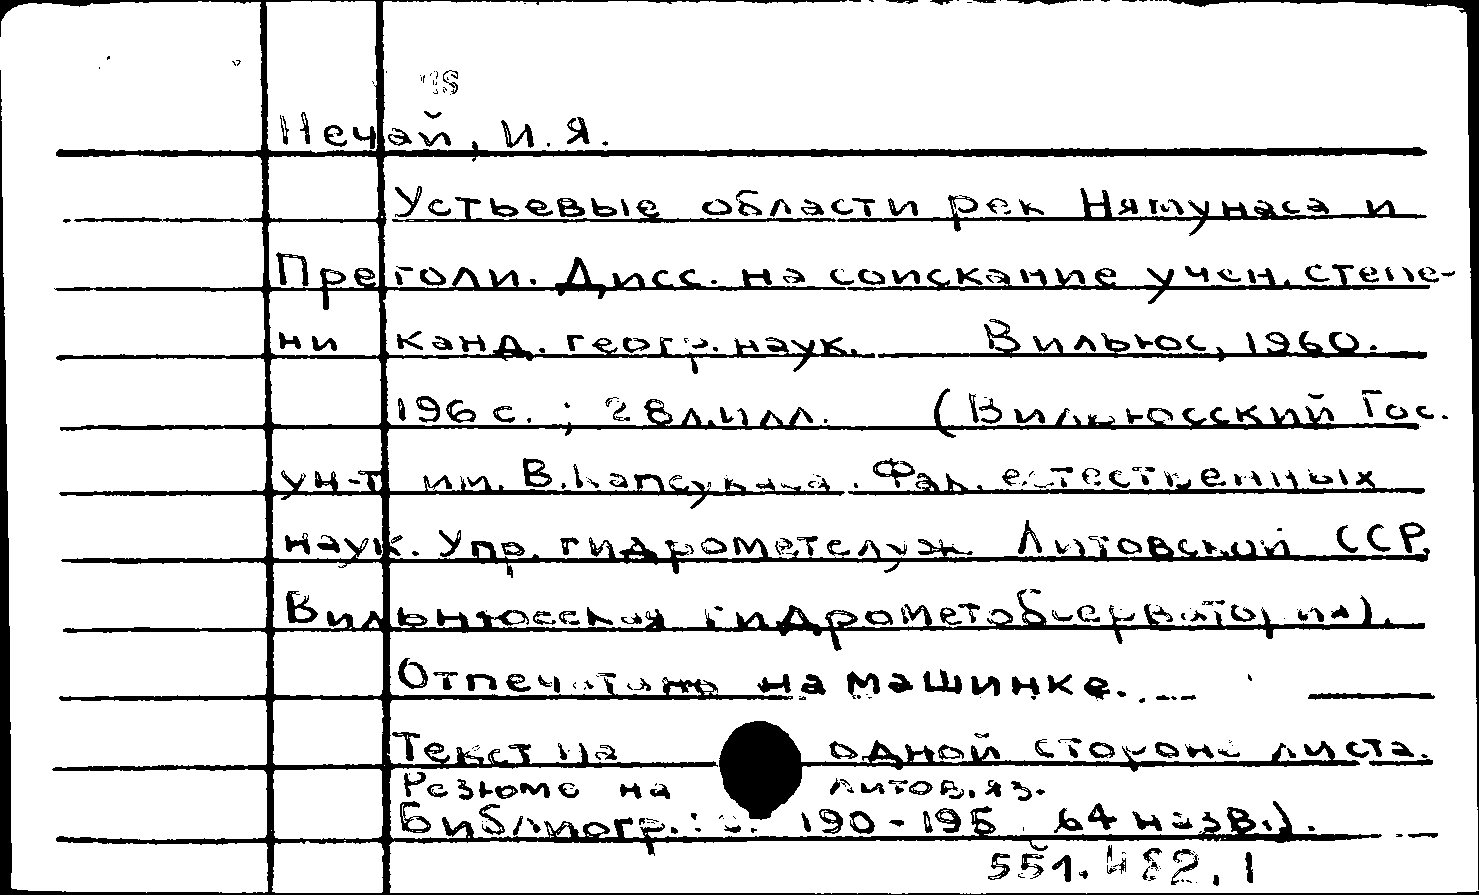 Нечай, И. Я.
Устьевые области рек Нямунаса и
Преголи. Дисс. на соискание учен. степе-
ни канд. геогр. наук. Вильнюс, 1960.
196 с. ; 28 л. илл. (Вильнюсский Гос.
ун-т им. В. Капсукаса. Фак. естественных
наук. Упр. гидрометслуж. Литовской ССР.
Вильнюсская гидрометобсерватория).
Отпечатано на машинке.
Текст на одной стороне листа.
Резюме на литов. яз.
Библиогр.: с. 190-195 64 назв.).
551.482.1